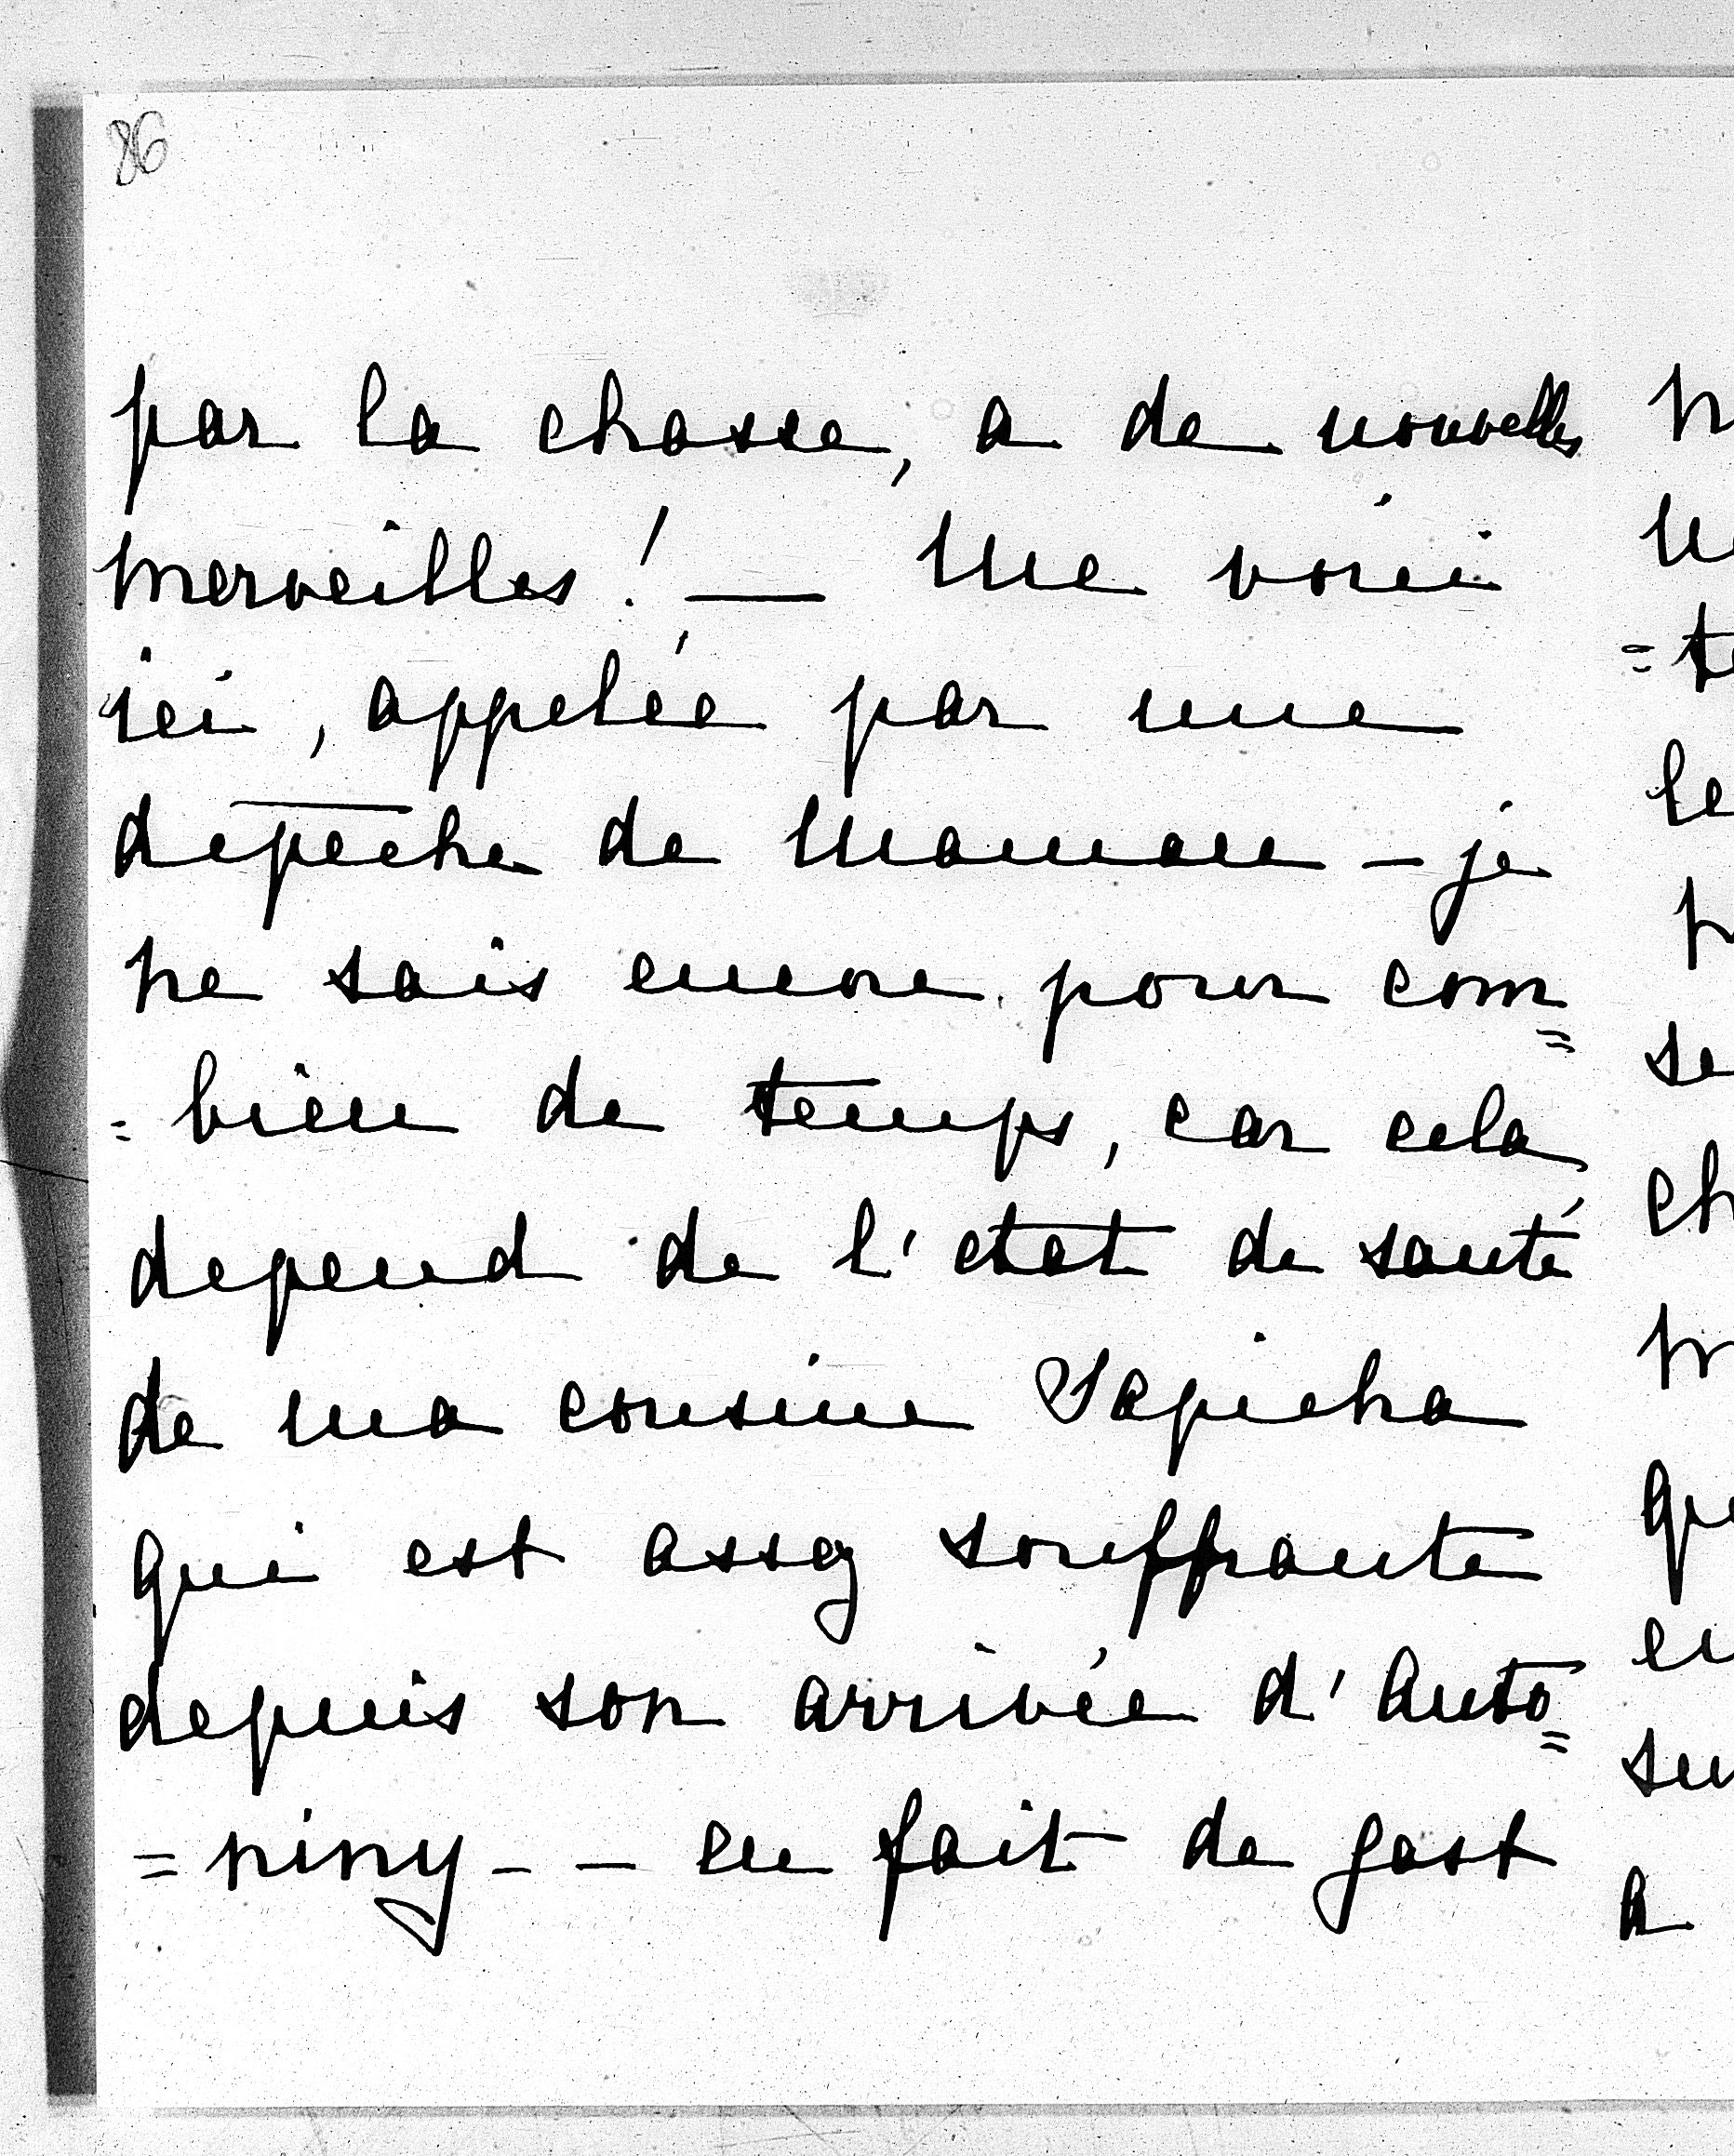 86
par la chasse, a de nouvelles
merveilles! — Me voici
ici, appelée par une
depeche de Maman — je
ne sais encore pour com=
=bien de temps, car cela
depend de l'etat de santé
de ma cousine Sapieha
qui est assez souffrante
depuis son arrivée d'Anto=
=niny - — en fait de gast